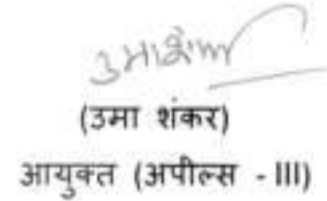 उमाशंकर
(उमा शंकर)
आयुक्त (अपील्स - III)